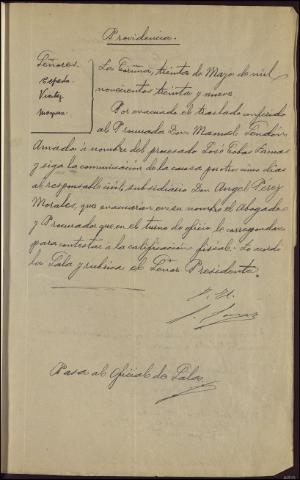 Providencia.
Señores.
Espada
Vieitez
La Coruña, treinta de Mayo de mil
novecientos treinta y nueve
Por evacuado el traslado conferido
al Procurador Don Manuel Pardo
Amado a nombre del procesado José Cobas Lamas
y siga la comunicación de la causa por tres dias
al responsable civil subsidiario Don Angel Pérez
Morales, que evacuaran en su nombre el Abogado
y Procurador que en el turno de oficio le correspondan
para contestar a la calificación fiscal. Lo acordó
la Sala y rubrica el Señor Presidente.
Pasa al Oficial de Sala